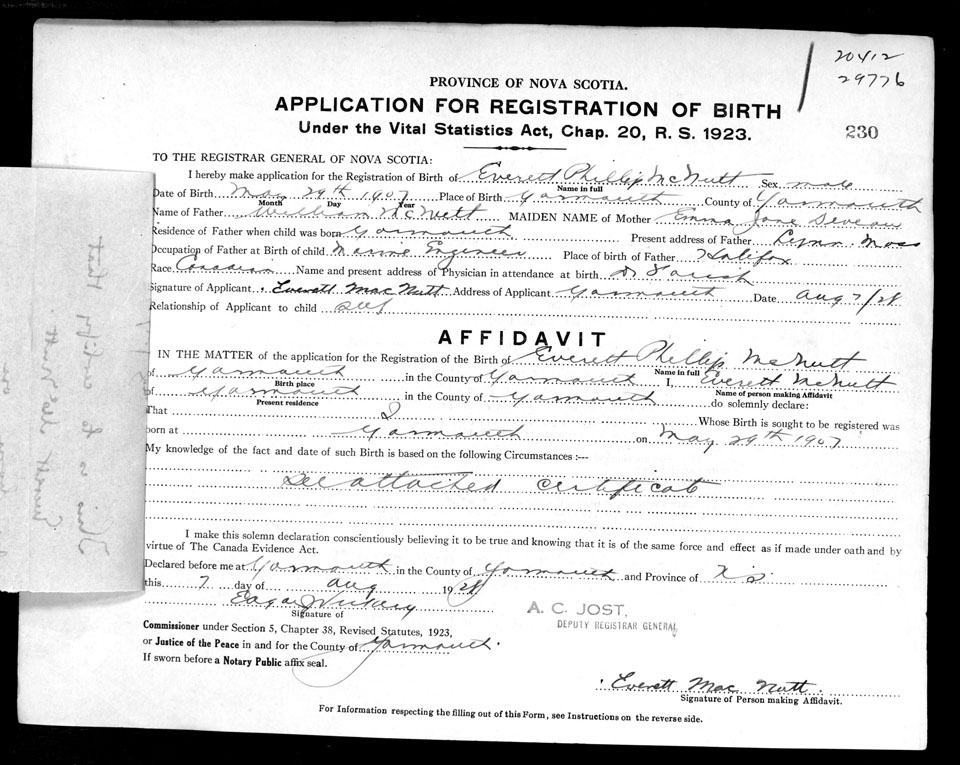 20412
29776
PROVINCE OF NOVA SCOTIA.
APPLICATION FOR REGISTRATION OF BIRTH
Under the Vital Statistics Act, Chap. 20, R. S. 1923.
230
TO THE REGISTRAR GENERAL OF NOVA SCOTIA:
I hereby make application for the Registration of Birth of Everett Phillip McNutt Sex male
Name in full
Date of Birth May 29th 1907 Place of Birth Yarmouth County of Yarmouth
Month Day Year
Name of Father William McNutt MAIDEN NAME of Mother Emma Jane Deveau
Residence of Father when child was born Yarmouth Present address of Father Lynn Mass
Occupation of Father at Birth of child Marine Engineer Place of birth of Father Halifax
Race Canadian Name and present address of Physician in attendance at birth Dr Farish
Signature of Applicant Everett MacNutt Address of Applicant Yarmouth Date Aug 7/28
Relationship of Applicant to child self
AFFIDAVIT
IN THE MATTER of the application for the Registration of the Birth of Everett Phillip McNutt
Name in full
of Yarmouth in the County of Yarmouth I, Everett McNutt
Birth place Name of person making Affidavit
of Yarmouth in the County of Yarmouth do solemnly declare:
Present residence
That I Whose Birth is sought to be registered was
born at Yarmouth on May 29th 1907
My knowledge of the fact and date of such Birth is based on the following Circumstances :—
See attached certificate
I make this solemn declaration conscientiously believing it to be true and knowing that it is of the same force and effect as if made under oath and by
virtue of The Canada Evidence Act.
Declared before me at Yarmouth in the County of Yarmouth and Province of N S
this 7 day of Aug 1928
Signature of
A. C. JOST,
DEPUTY REGISTRAR GENERAL
Commissioner under Section 5, Chapter 38, Revised Statutes, 1923,
or Justice of the Peace in and for the County of Yarmouth.
If sworn before a Notary Public affix seal.
Everett Mac Nutt.
Signature of Person making Affidavit.
For Information respecting the filling out of this Form, see Instructions on the reverse side.
This is to certify that